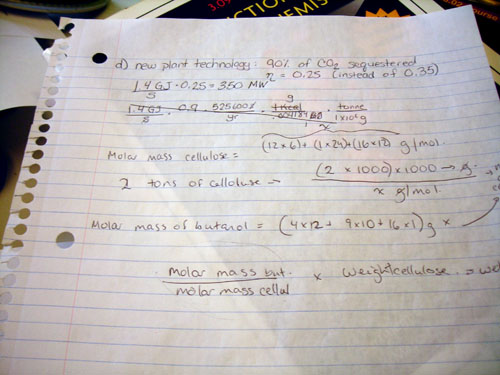 3.05
CTION
3.02
d) new plant technology: 90% of CO2 sequestered
η = 0.25 (instead of 0.35)
1.4 GJ/s · 0.25 = 350 MW
1.4 GJ/s · 0.9 · /yr · g · tonne/1x10⁶g
x
Molar mass cellulose = (12x6)+(1x24)+(16x12) g/mol
2 tons of cellulose → (2 x 1000) x 1000 → g / x g/mol
Molar mass of butanol = (4x12 + 9x10 + 16x1) g x
molar mass but. / molar mass cellul x weight cellulose =